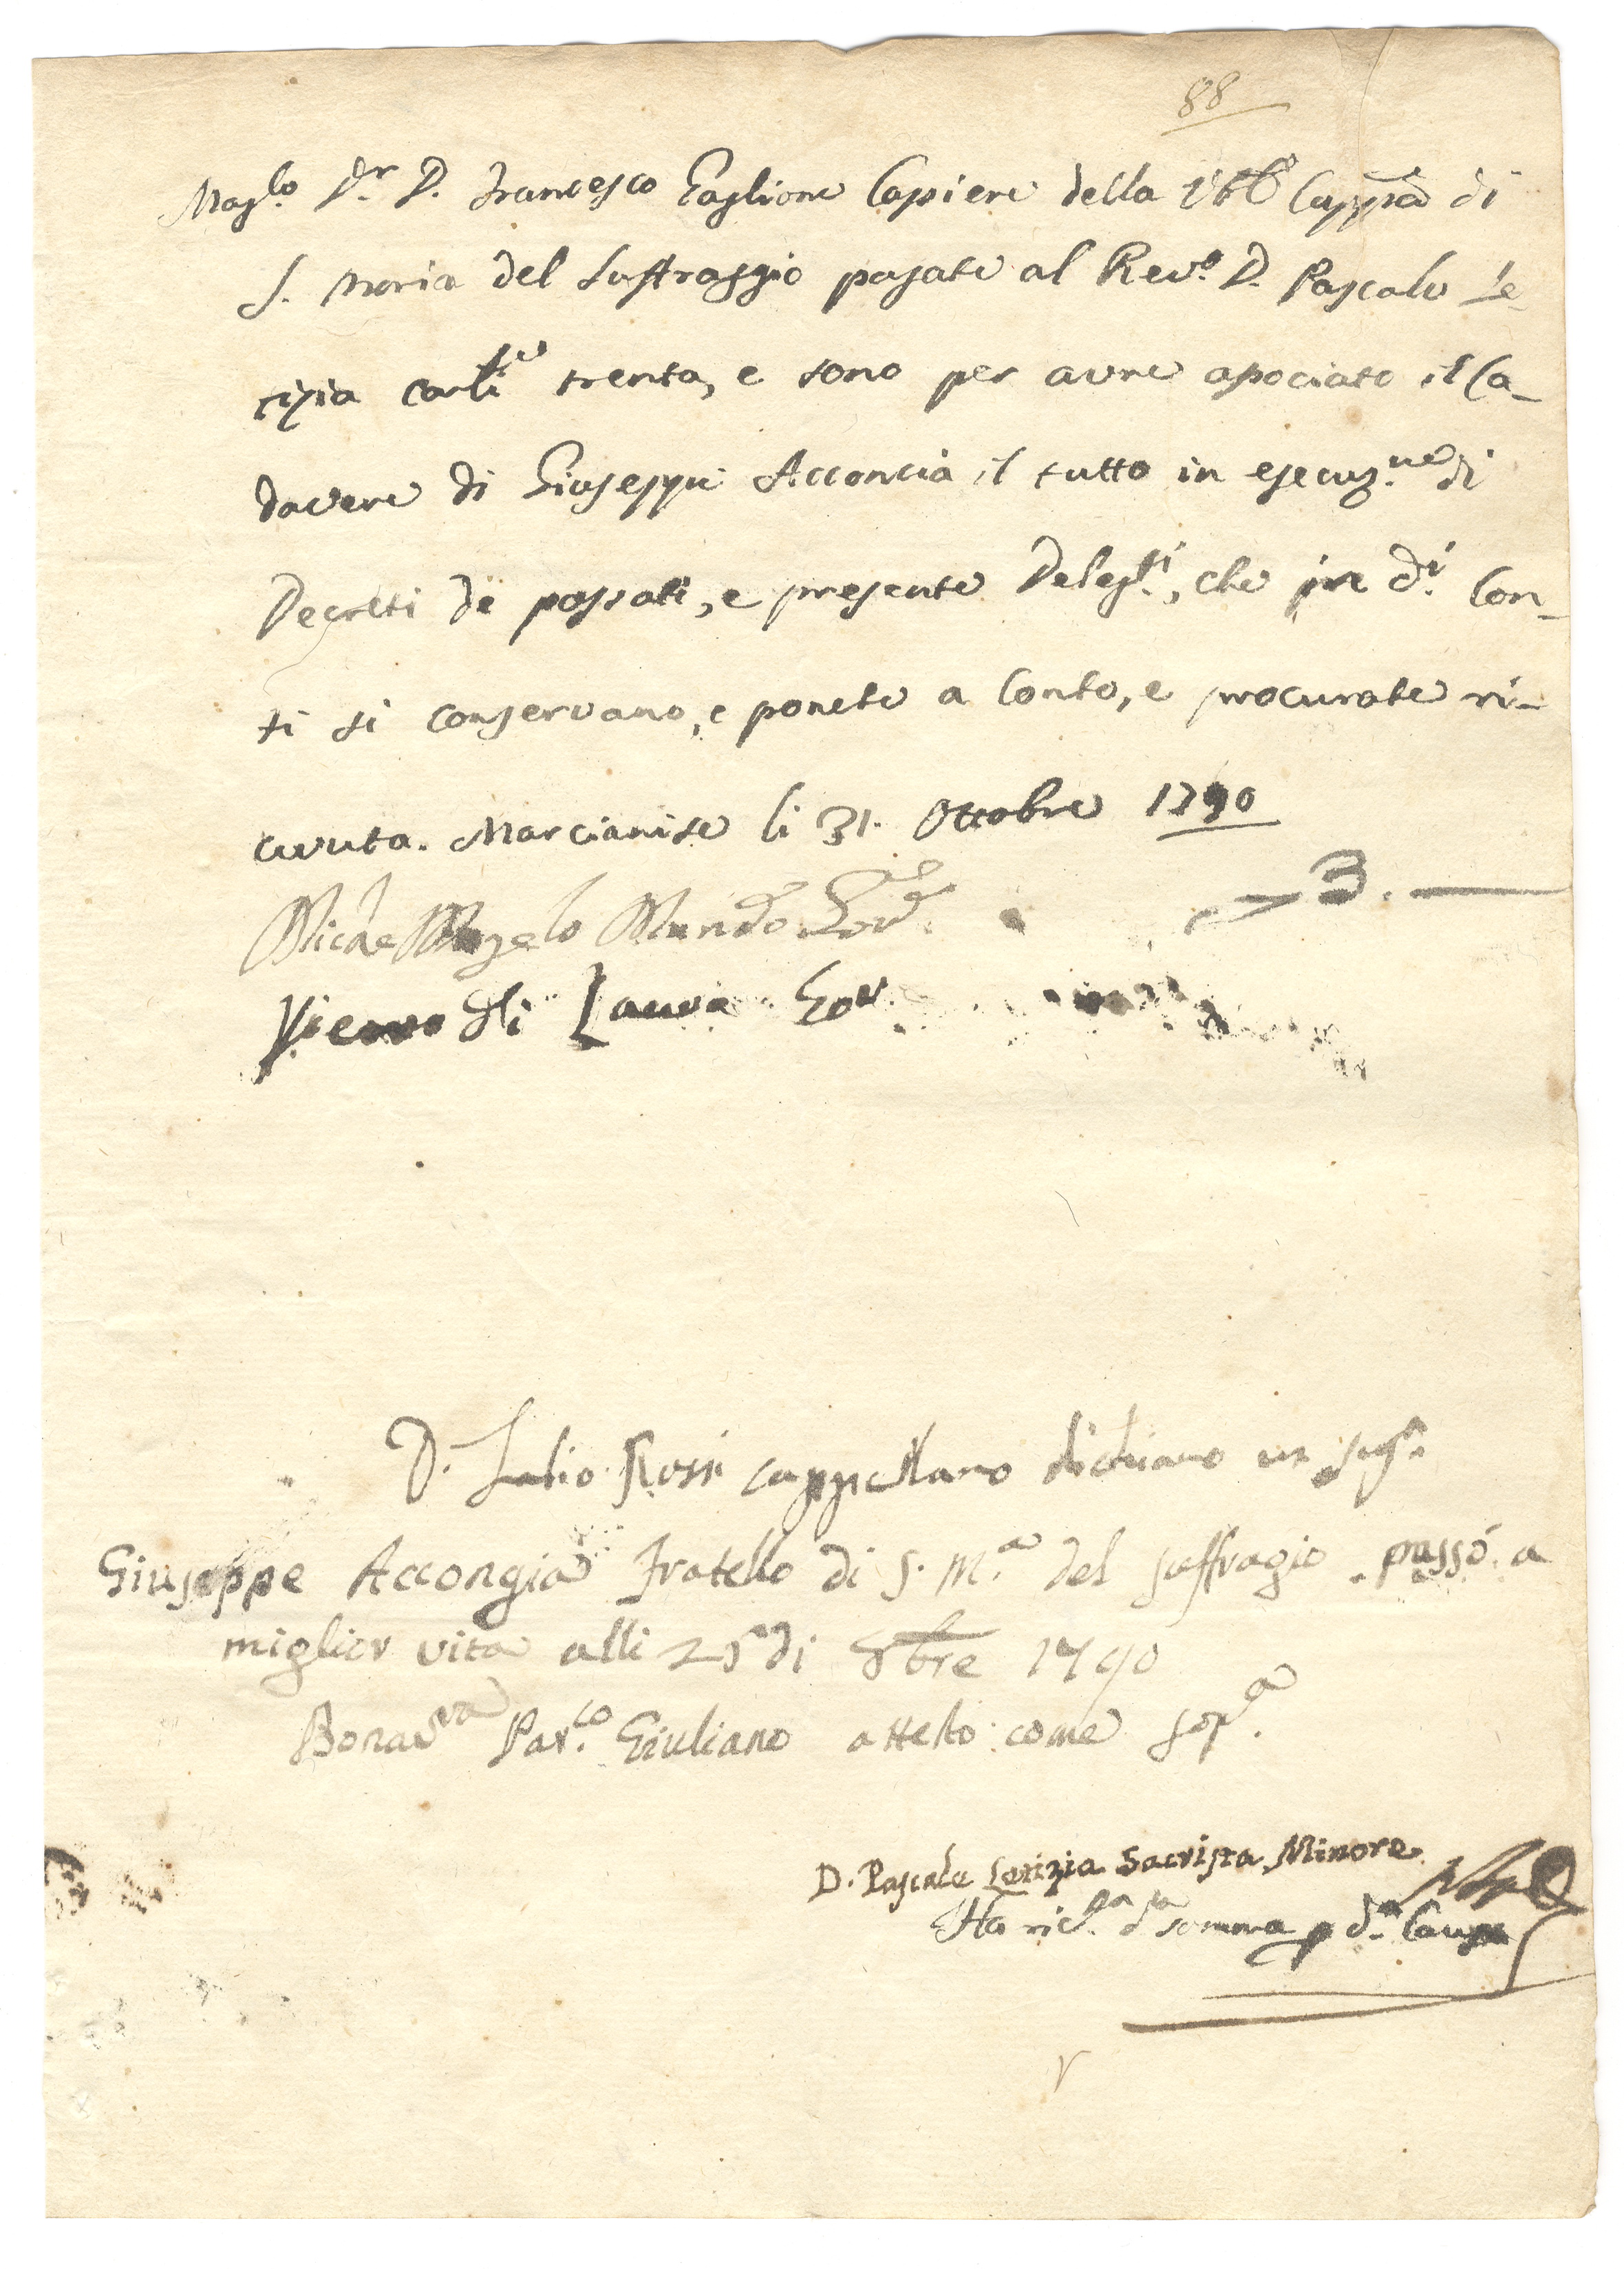 88
Mag.lo D.r D. Francesco Taglione Capiere della Ve Capp.a di
S. Maria del Suffraggio pagate al Rev.o D. Pascale Le-
tizia carli trenta, e sono per avere apociato il Ca-
davere di Giuseppe Acconcia il tutto in esecuz.ne di
Decreti de passati, e presente Deleg.ti, che pre d.i Con-
ti si conservano, e ponete a Conto, e procurate ri-
cevuta. Marcianise li 31. Ottobre 1790
3. —
Michel'Angelo Mundo Gov.re
di Laura Gov.
D. Rossi cappellano dichiaro
Giuseppe Accongia Fratello di S. M.a del suffragio passò a
miglior vita alli 25 di 8bre 1790
Bonav.ra Par.co Giuliano attesto come sop.a
D. Pascale Letizia Sacrista Minore
Ha ric.ta d.a somma p d.a Causa